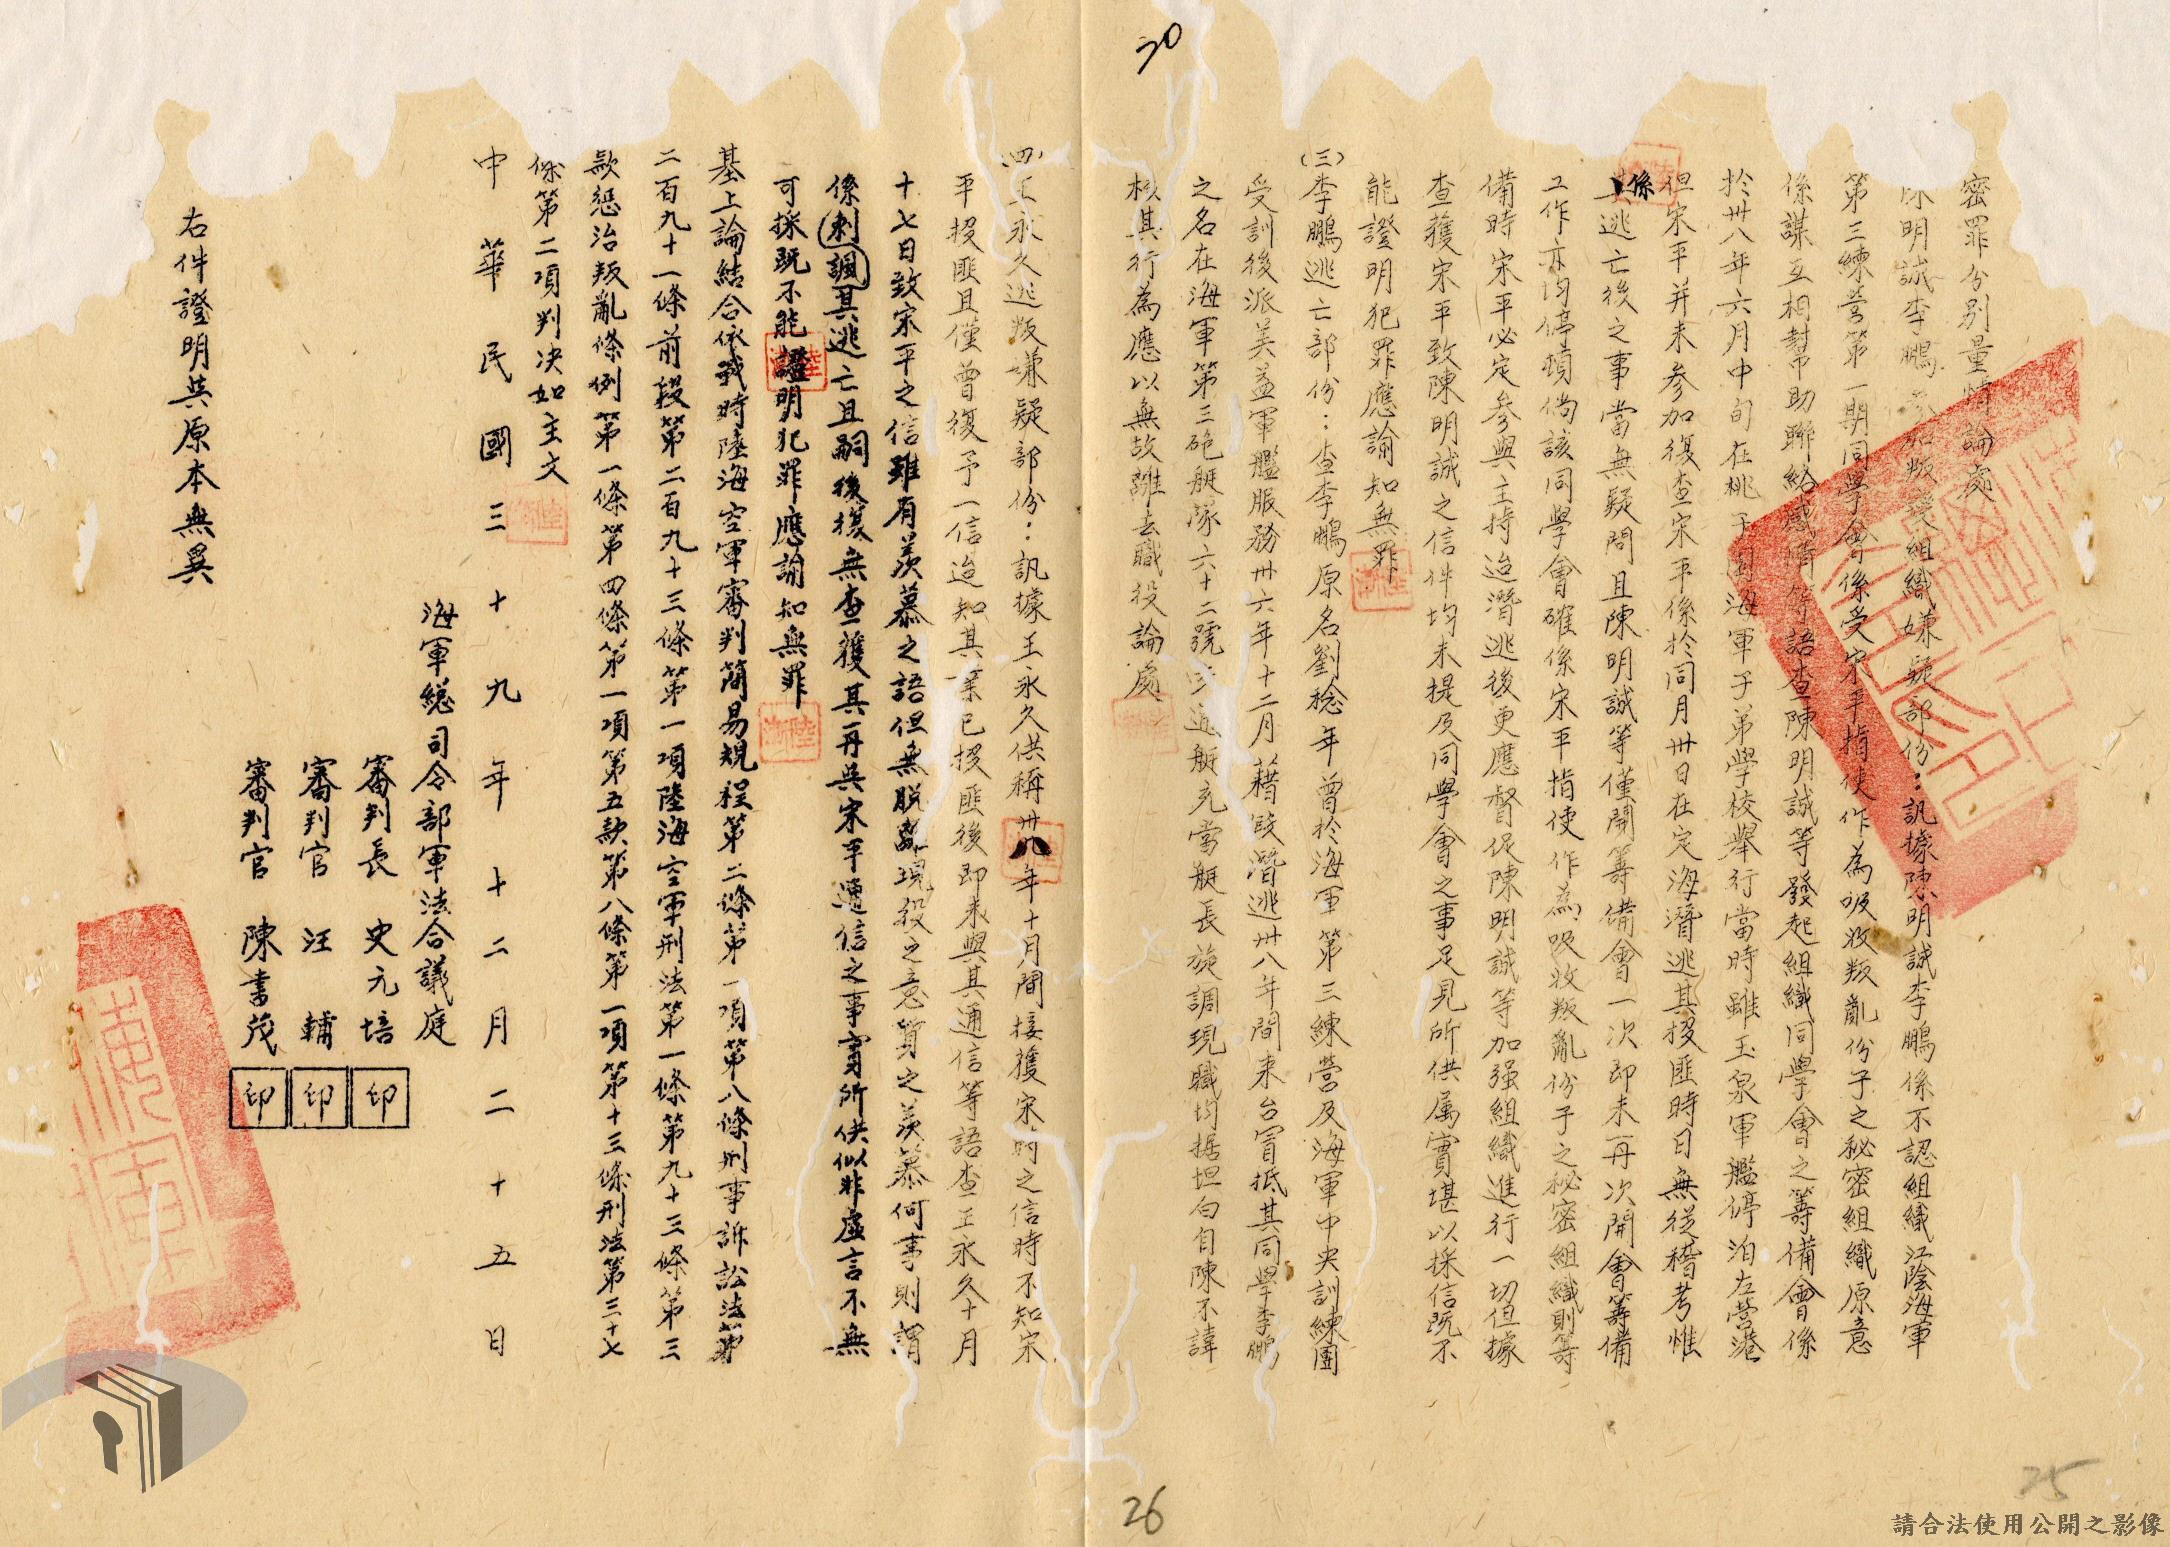 70
密罪份別量情論處
陳明誠李鵬參加叛亂組織嫌疑部份：訊據陳明誠李鵬係不認組織江陰海軍
第三練營第一期同學會係受宋平指使作為吸收叛亂份子之秘密組織原意
係謀互相幫助聯絡感情等語查陳明誠等發起組織同學會之籌備會係
於卅八年六月中旬在桃子園海軍子弟學校舉行當時雖玉泉軍艦停泊左營港
但宋平并未參加復查宋平係於同月卅日在定海潛逃其投匪時日無從稽考惟
係
其逃亡後之事當無疑問且陳明誠等僅開籌備會一次即未再次開會籌備
工作亦均停頓倘該同學會確係宋平指使作為吸收叛亂份子之秘密組織則籌
備時宋平必定參與主持迨潛逃後更應督促陳明誠等加强組織進行一切但據
查獲宋平致陳明誠之信件均未提及同學會之事足見所供属實堪以採信既不
能證明犯罪應諭知無罪
(三)李鵬逃亡部份：查李鵬原名劉稔年曾於海軍第三練營及海軍中央訓練團
受訓後派美益軍艦服務卅六年十二月藉故潛逃卅八年間來台冒抵其同學李鵬
之名在海軍第三砲艇隊六十二號巡艇充當艇長旋調現職均据坦白自陳不諱
核其行為應以無故離去職役論處
(四)王永久逃叛嫌疑部份：訊據王永久供稱卅八年十月間接獲宋平之信時不知宋
平投匪且僅曾復予一信迨知其業已投匪後即未與其通信等語查王永久十月
十七日致宋平之信雖有羨慕之語但無脫離現役之意算之羨慕何事則謂
係刺諷其逃亡且嗣後復無查獲其再與宋平通信之事實所供似非虛言不無
可採既不能證明犯罪應諭知無罪
基上論結合依戰時陸海空軍審判簡易規程第二條第一項第八條刑事訴訟法第
二百九十一條前段第二百九十三條第一項陸海空軍刑法第一條第九十三條第三
款惩治叛亂條例第一條第四條第一項第五款第八條第一項第十三條刑法第三十七
條第二項判決如主文
中華民國三十九年十二月二十五日
海軍總司令部軍法合議庭
審判長 史元培 印
審判官 汪輔 印
審判官 陳書茂 印
右件證明與原本無異
26
25
請合法使用公開之影像